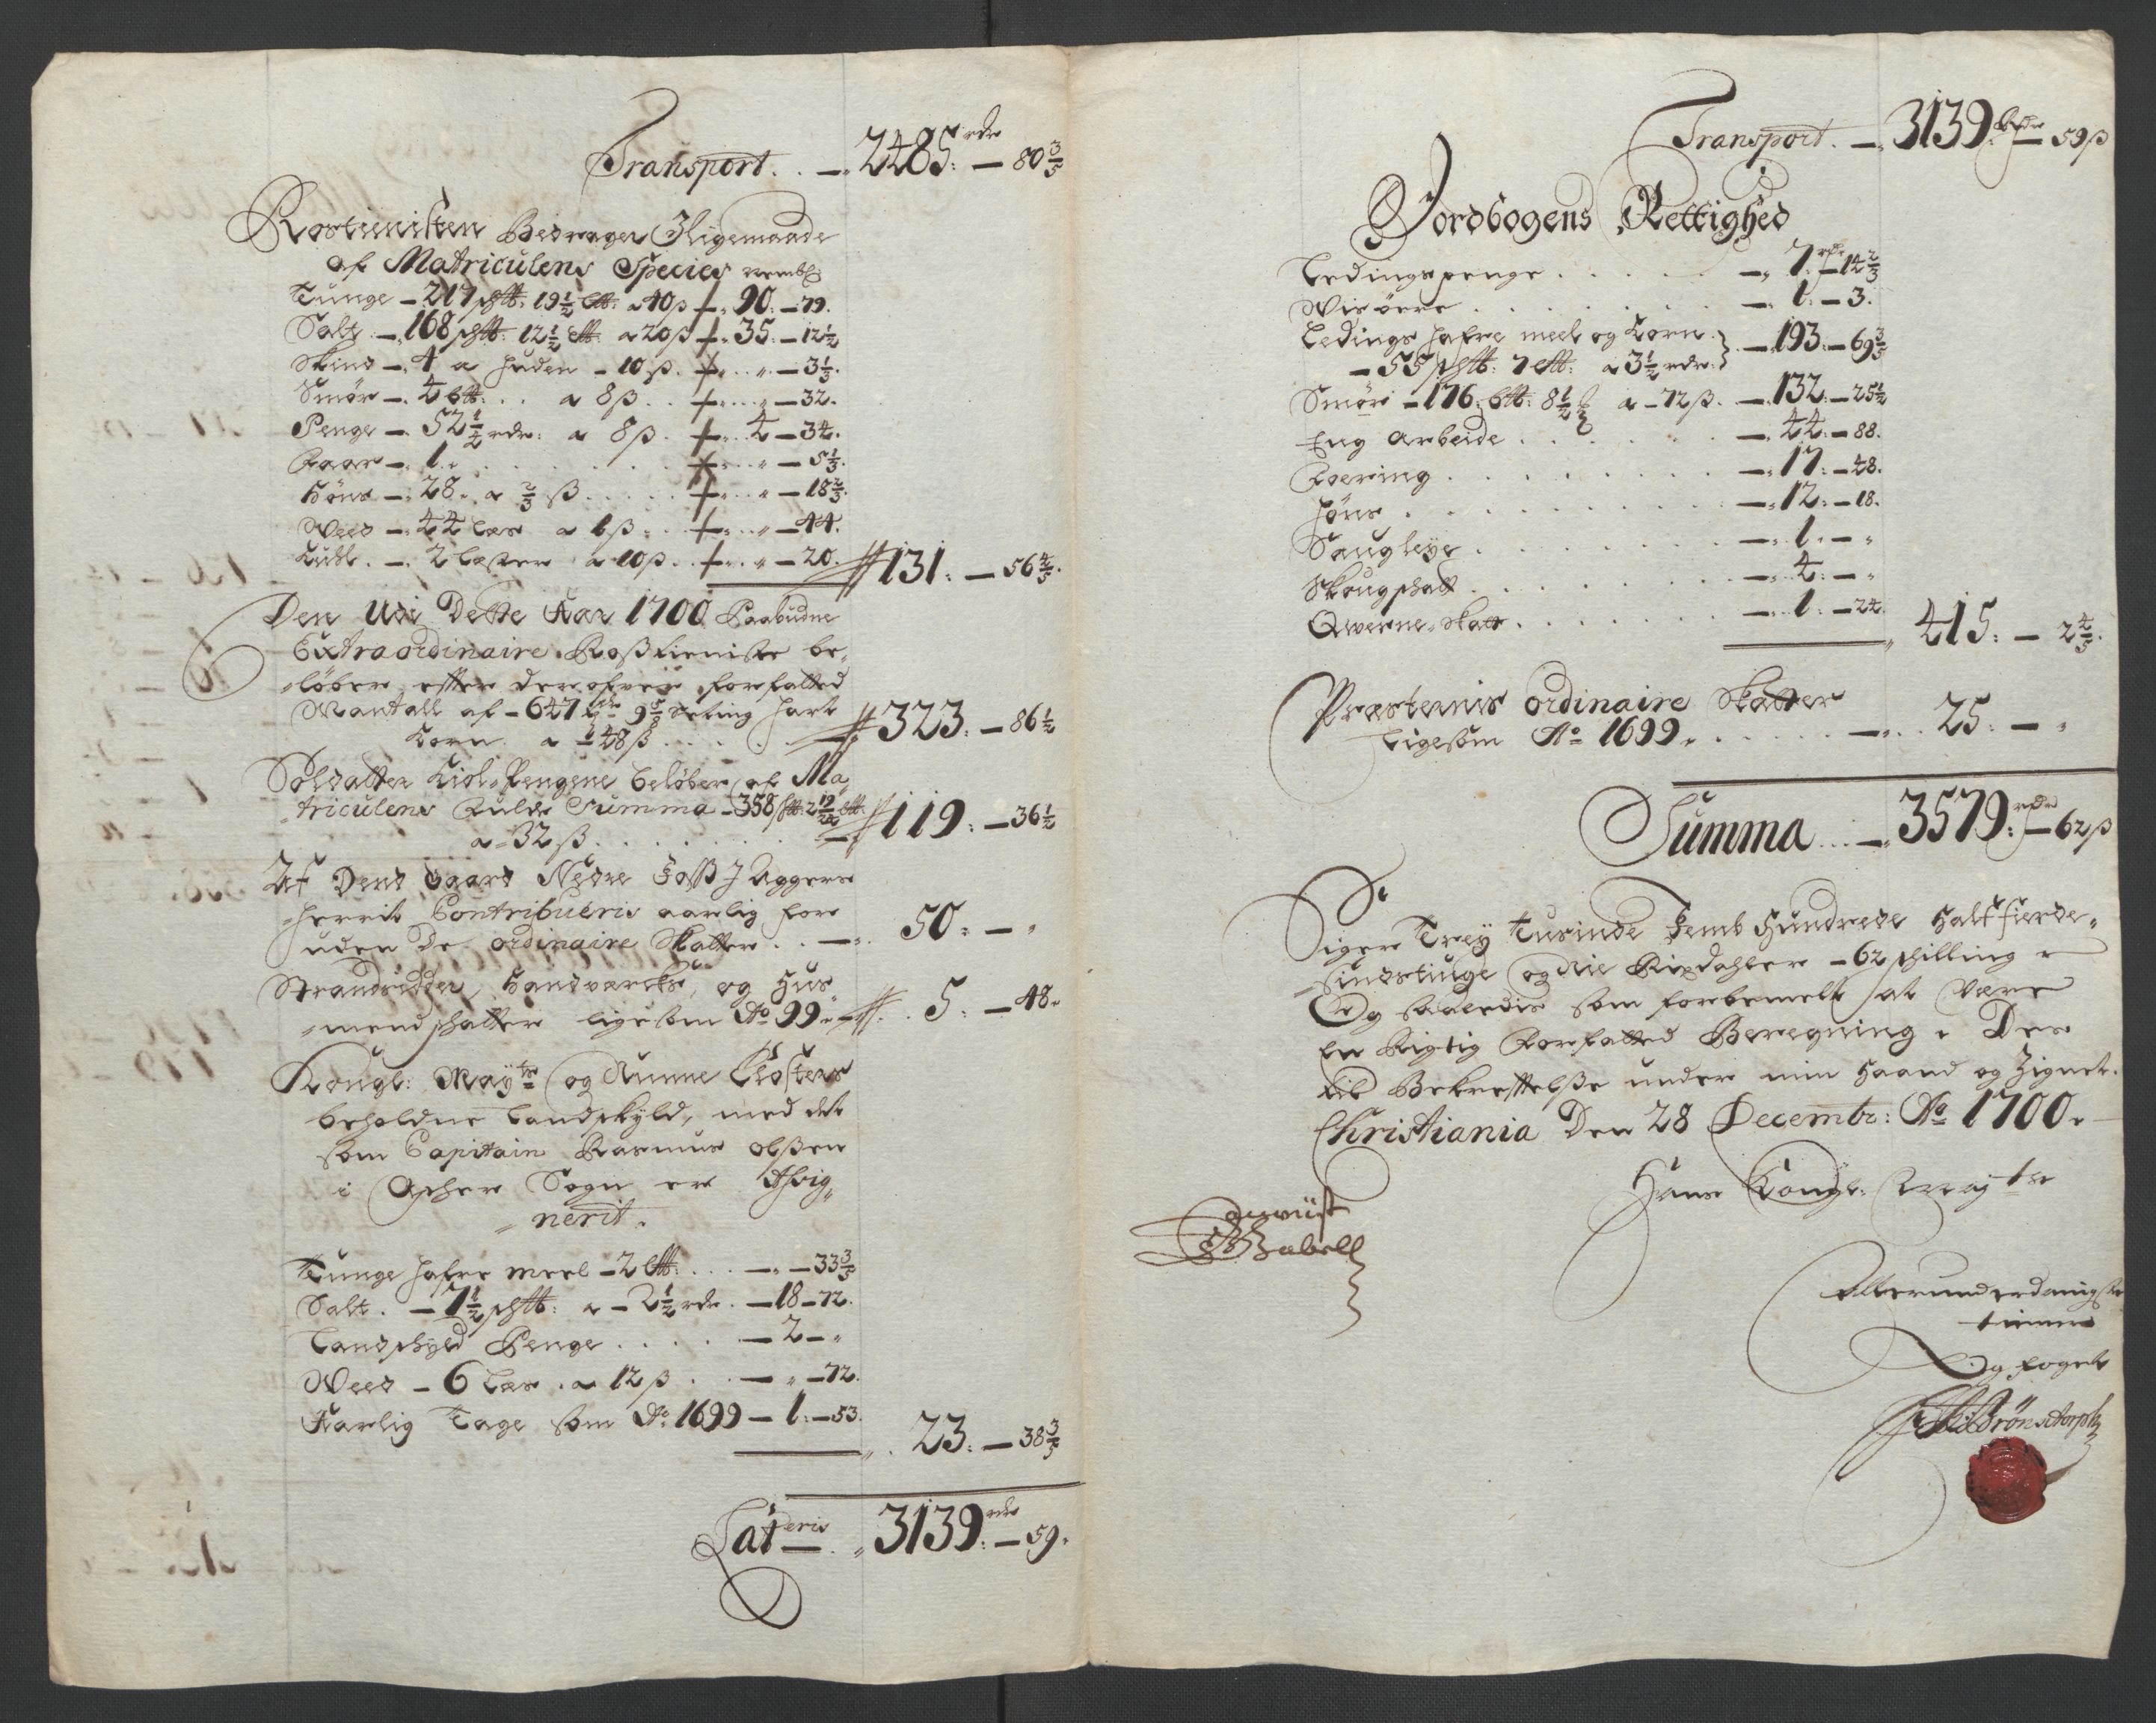 Transport . . — 2485: rdr — 80 3/5
Rostienisten Bedrager Ligemaade
af Matriculens Species nembl:
Tunge — 217 pß: 19 1/2 ß: a 40 ß — 90: — 79.
Salt — 168 pß: 12 1/2 ß a 20 ß — 35: — 12 1/2
Skind — 4 a huden — 10 ß. — „ — 3 1/3.
Smör — 4 bß: . . a 8 ß . . — „ — 32.
Penge — 52 1/4 rdr: a 8 ß . — 4 — 34.
Faar — 1. . . . . — „ — 5 1/3.
Höns — 28. a 2/3 ß . . . . — „ — 18 2/3.
Weed — 44 læs a 1 ß . . — „ — 44.
Kuhl. — 2 læster a 10 ß . . — „ — 20. 131: — 56 4/5.
Den Udi Dette Aar 1700 Paabudne
Extraordinaire Roßtieniste be„
„löber efter derofver forfatted
Mantall af — 647 9 5/9 Setting hart
Korn a 48 ß . . . . 323: — 86 1/2
Soldatter Kiol-Pengene beløber af Ma„
„triculens Fulde Summa — 358 2 19/24
a — 32 ß . . . . . 119: — 36 1/2
Af Dend Gaard Nedre Foss J Aggers
„herrit Contribueris aarlig for
uden De ordinaire Skatter . . — 50: — „
Strandsidder, Handværcks, og Huus„
„mend skatter ligesom Ao 99. — 5: — 48.
Kongl: Mayts og Nunne Closters
beholdne Landskyld, med det
som Capitain Rasmus olßen
i Asker Sogn er Assig„
„nerit.
Tunge hafre meel — 2 . . . — „ — 33 3/5
Salt . — 7 1/2 pß: a — 2 1/2 rdr. — 18 — 72.
Landskyld Penge . . . . — 2 — „
Weed — 6 Læs . a 12 ß . . — „ — 72.
Aarlig Tage som Ao 1699 — 1: — 53.
23: — 38 3/5
Lateris „ 3139: rdr — 59.
Transport . — 3139: rdr — 59 ß
Jordbogens Rettighed
Ledingspenge . . . . . — 7: rdr — 14 2/3
Wisöere . . . . . . — 1: — 3.
Ledings hafre meel og Korn . } — 193: — 69 3/5
— 55 pß: 7 ß: a 3 1/2 rdr:
Smör — 176 bß: 8 1/2 a — 72 ß. — 132: — 25 1/2
Eng arbeide . . . . . — 44: — 88.
Foering . . . . . . — 17: — 48.
Höns . . . . . . — 12: — 18.
Saugleye . . . . . . — 1. — „
Skougskatt . . . . . . — 4: — „
Qwerne-skatt . . . . . — 1: — 24.
415: — 2 4/5.
Præsternis ordinaire Skatter
Ligesom Ao 1699. . . . . . — 25: — „
Summa . . — 3579: rdr — 62 ß
Siger Trey Tusinde Femb Hundrede Halffierde„
„sindstiuge og Nie Rixdahler — 62 skilling
Og saaledis som forbemelt at være
En Rigtig Forfatted Beregning. Des
til Bekreftelße under min Haand og Zignet.
Christiania Den 28 Decembr: Ao 1700.
Hans Kongl: Mayts
Allerunderdanigste
tienner
Og foget